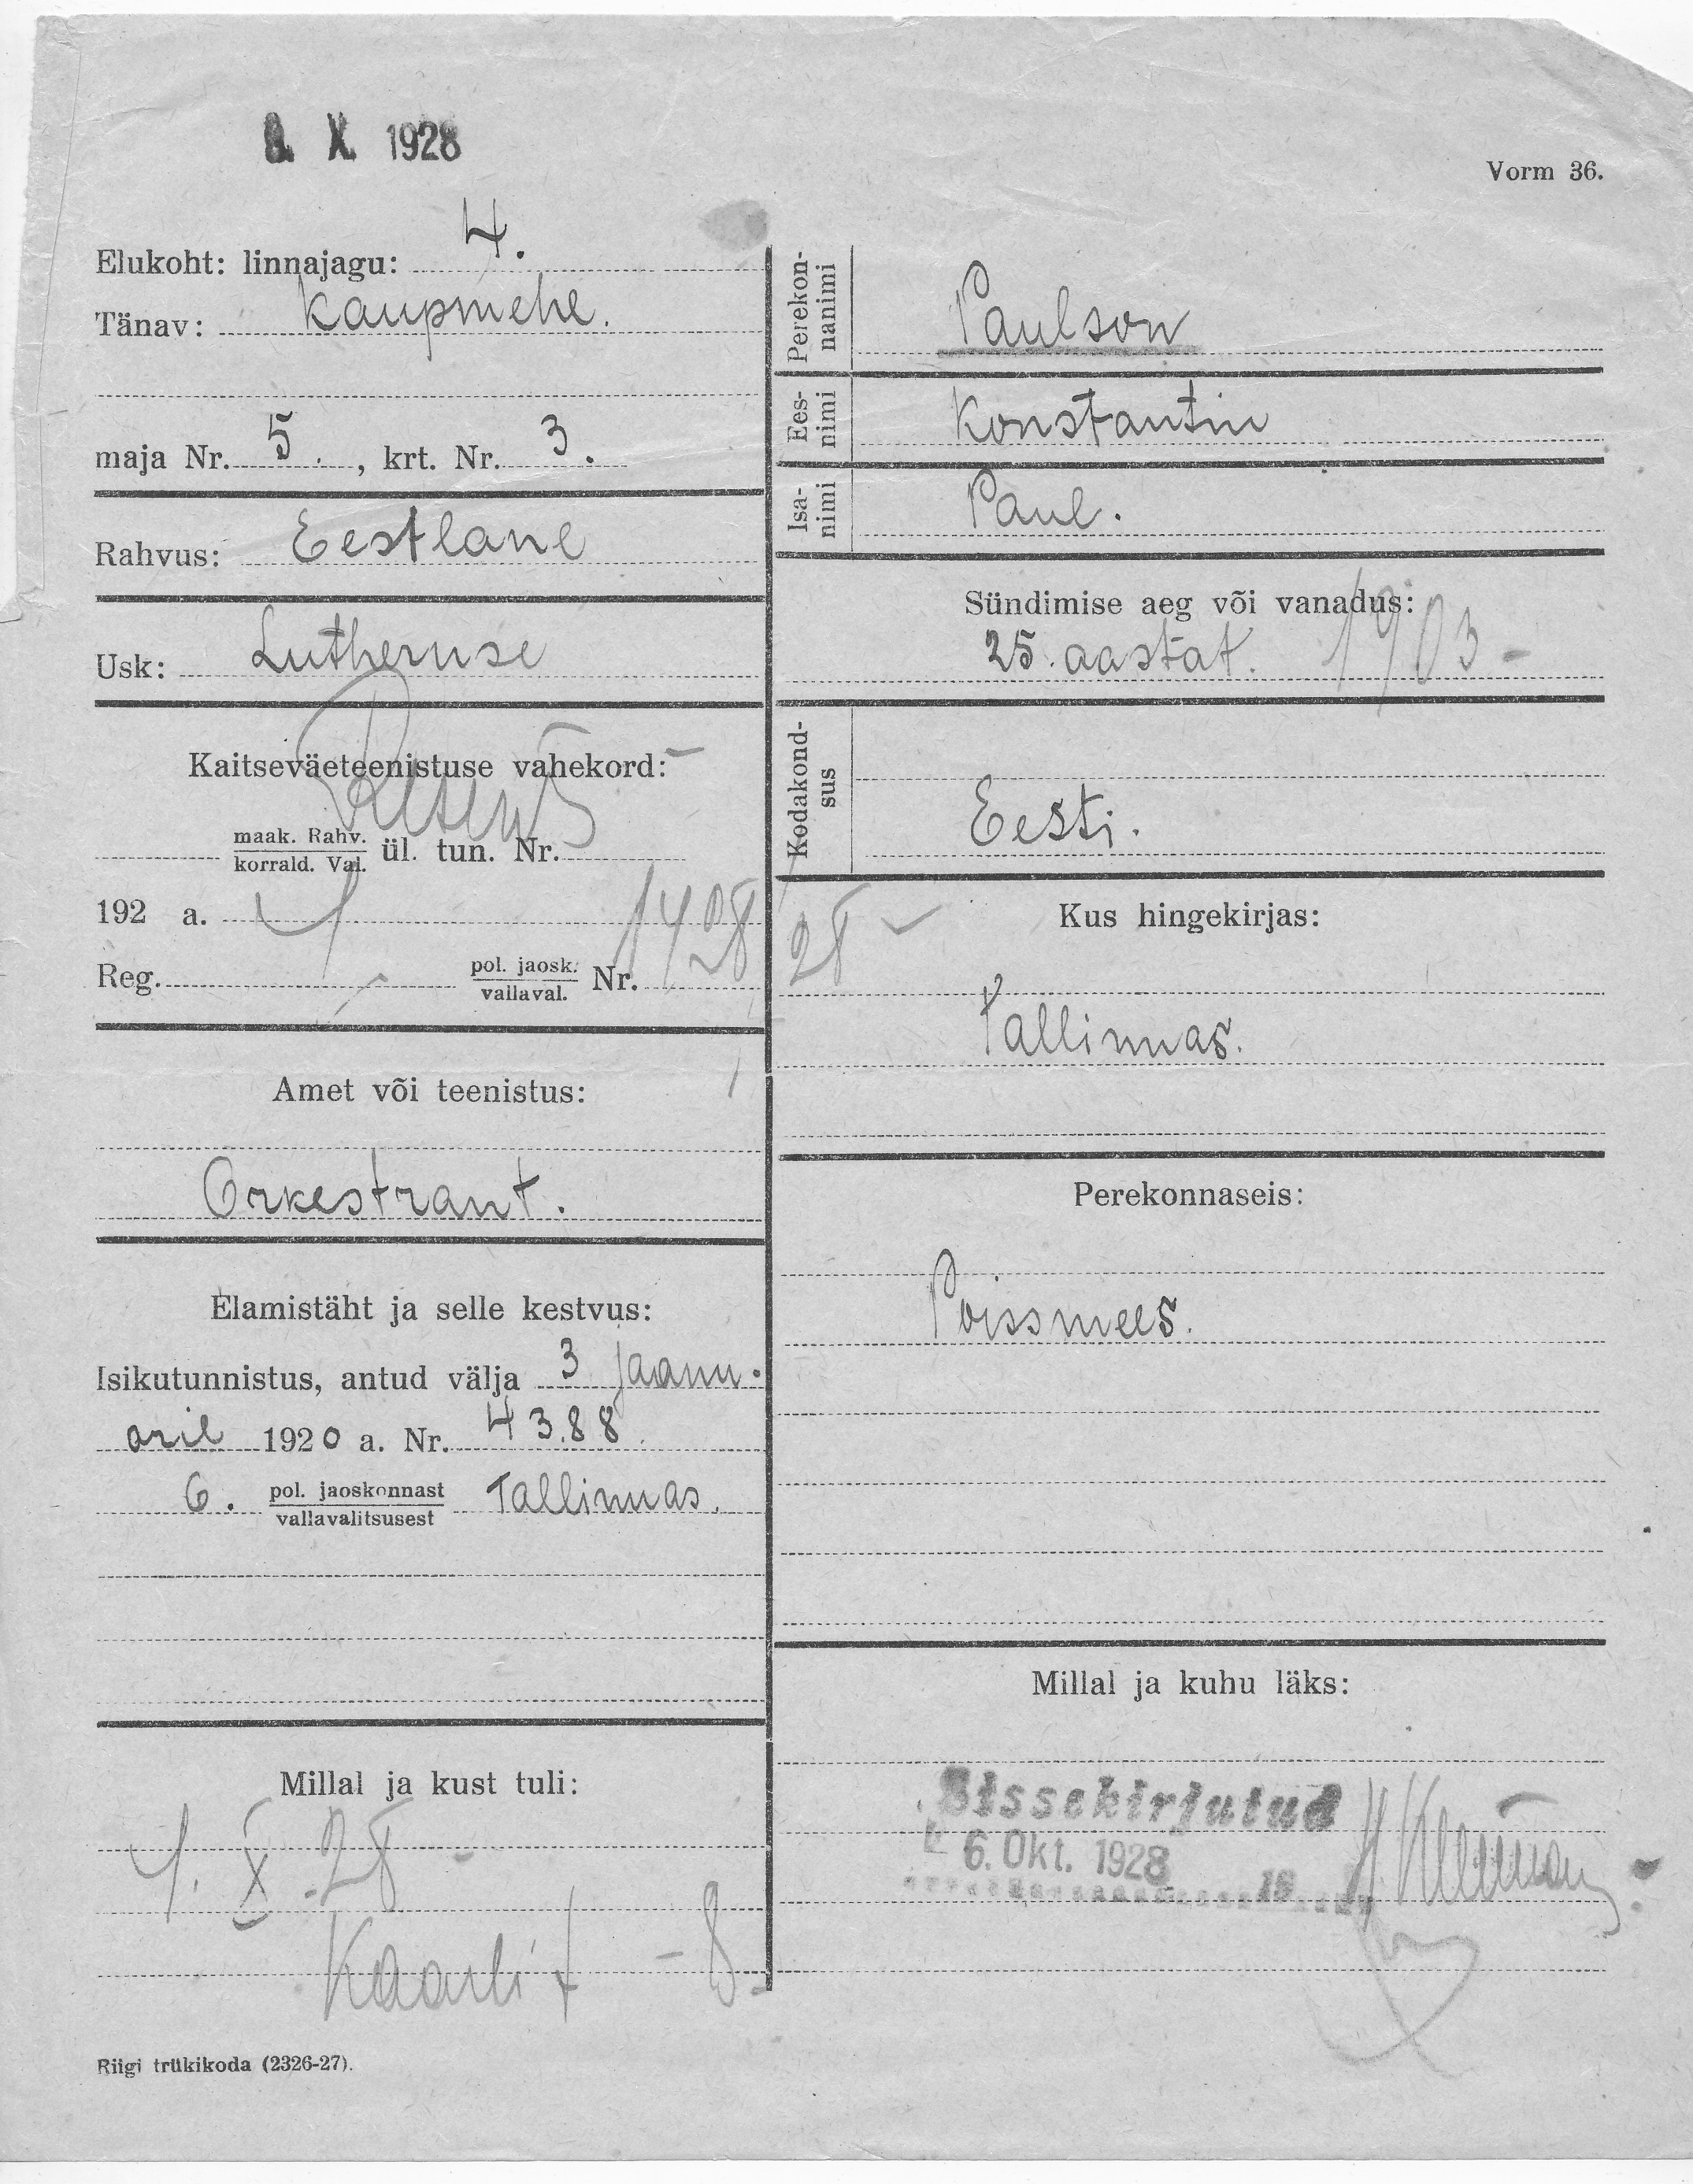 8. X. 1928
Vorm 36.
Elukoht: linnajagu: 4.
Tänav: Kaupmehe.
maja Nr. 5., krt. Nr. 3.
Rahvus: Eestlane
Usk: Lutheruse
Kaitseväeteenistuse vahekord:
maak. Rahv.
korrald. Val. ül. tun. Nr.
192 a.
Reg. pol. jaosk.
vallaval. Nr. 1428
28
Amet või teenistus:
Orkestrant.
Elamistäht ja selle kestvus:
Isikutunnistus, antud välja 3 jaanu-
aril 1920 a. Nr. 4388
6. pol. jaoskonnast
vallavalitsusest Tallinnas.
Millal ja kust tuli:
1. X. 28 -
Kaarli t - 8
Riigi trükikoda (2326-27).
Perekon-
nanimi
Paulson
Ees-
nimi
Konstantin
Isa-
nimi
Paul.
Sündimise aeg või vanadus:
25. aastat. 1903 -
Kodakond-
sus
Eesti.
Kus hingekirjas:
Tallinnas.
Perekonnaseis:
Poissmees.
Millal ja kuhu läks:
Sissekirjutud
6. Okt. 1928
19